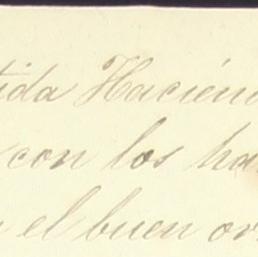 tida Haciéna
con los ha
el buen or